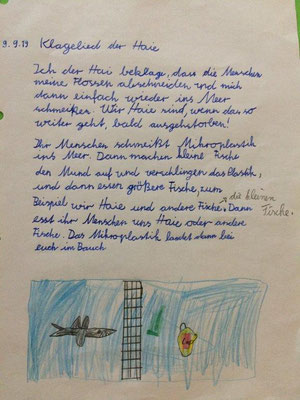 9.9.19 Klagelied der Haie
Ich der Hai beklage, dass die Menschen
meine Flossen abschneiden und mich
dann einfach wieder ins Meer
schmeißen. Wir Haie sind, wenn das so
weiter geht, bald ausgestorben!
Ihr Menschen schmeißt Mikroplastik
ins Meer. Dann machen kleine Fische
den Mund auf und verschlingen das Plastik,
und dann essen größere Fische, zum
Beispiel wir Haie und andere Fische, die kleinen Fische. Dann
esst ihr Menschen uns Haie oder andere
Fische. Das Mikroplastik landet dann bei
euch im Bauch